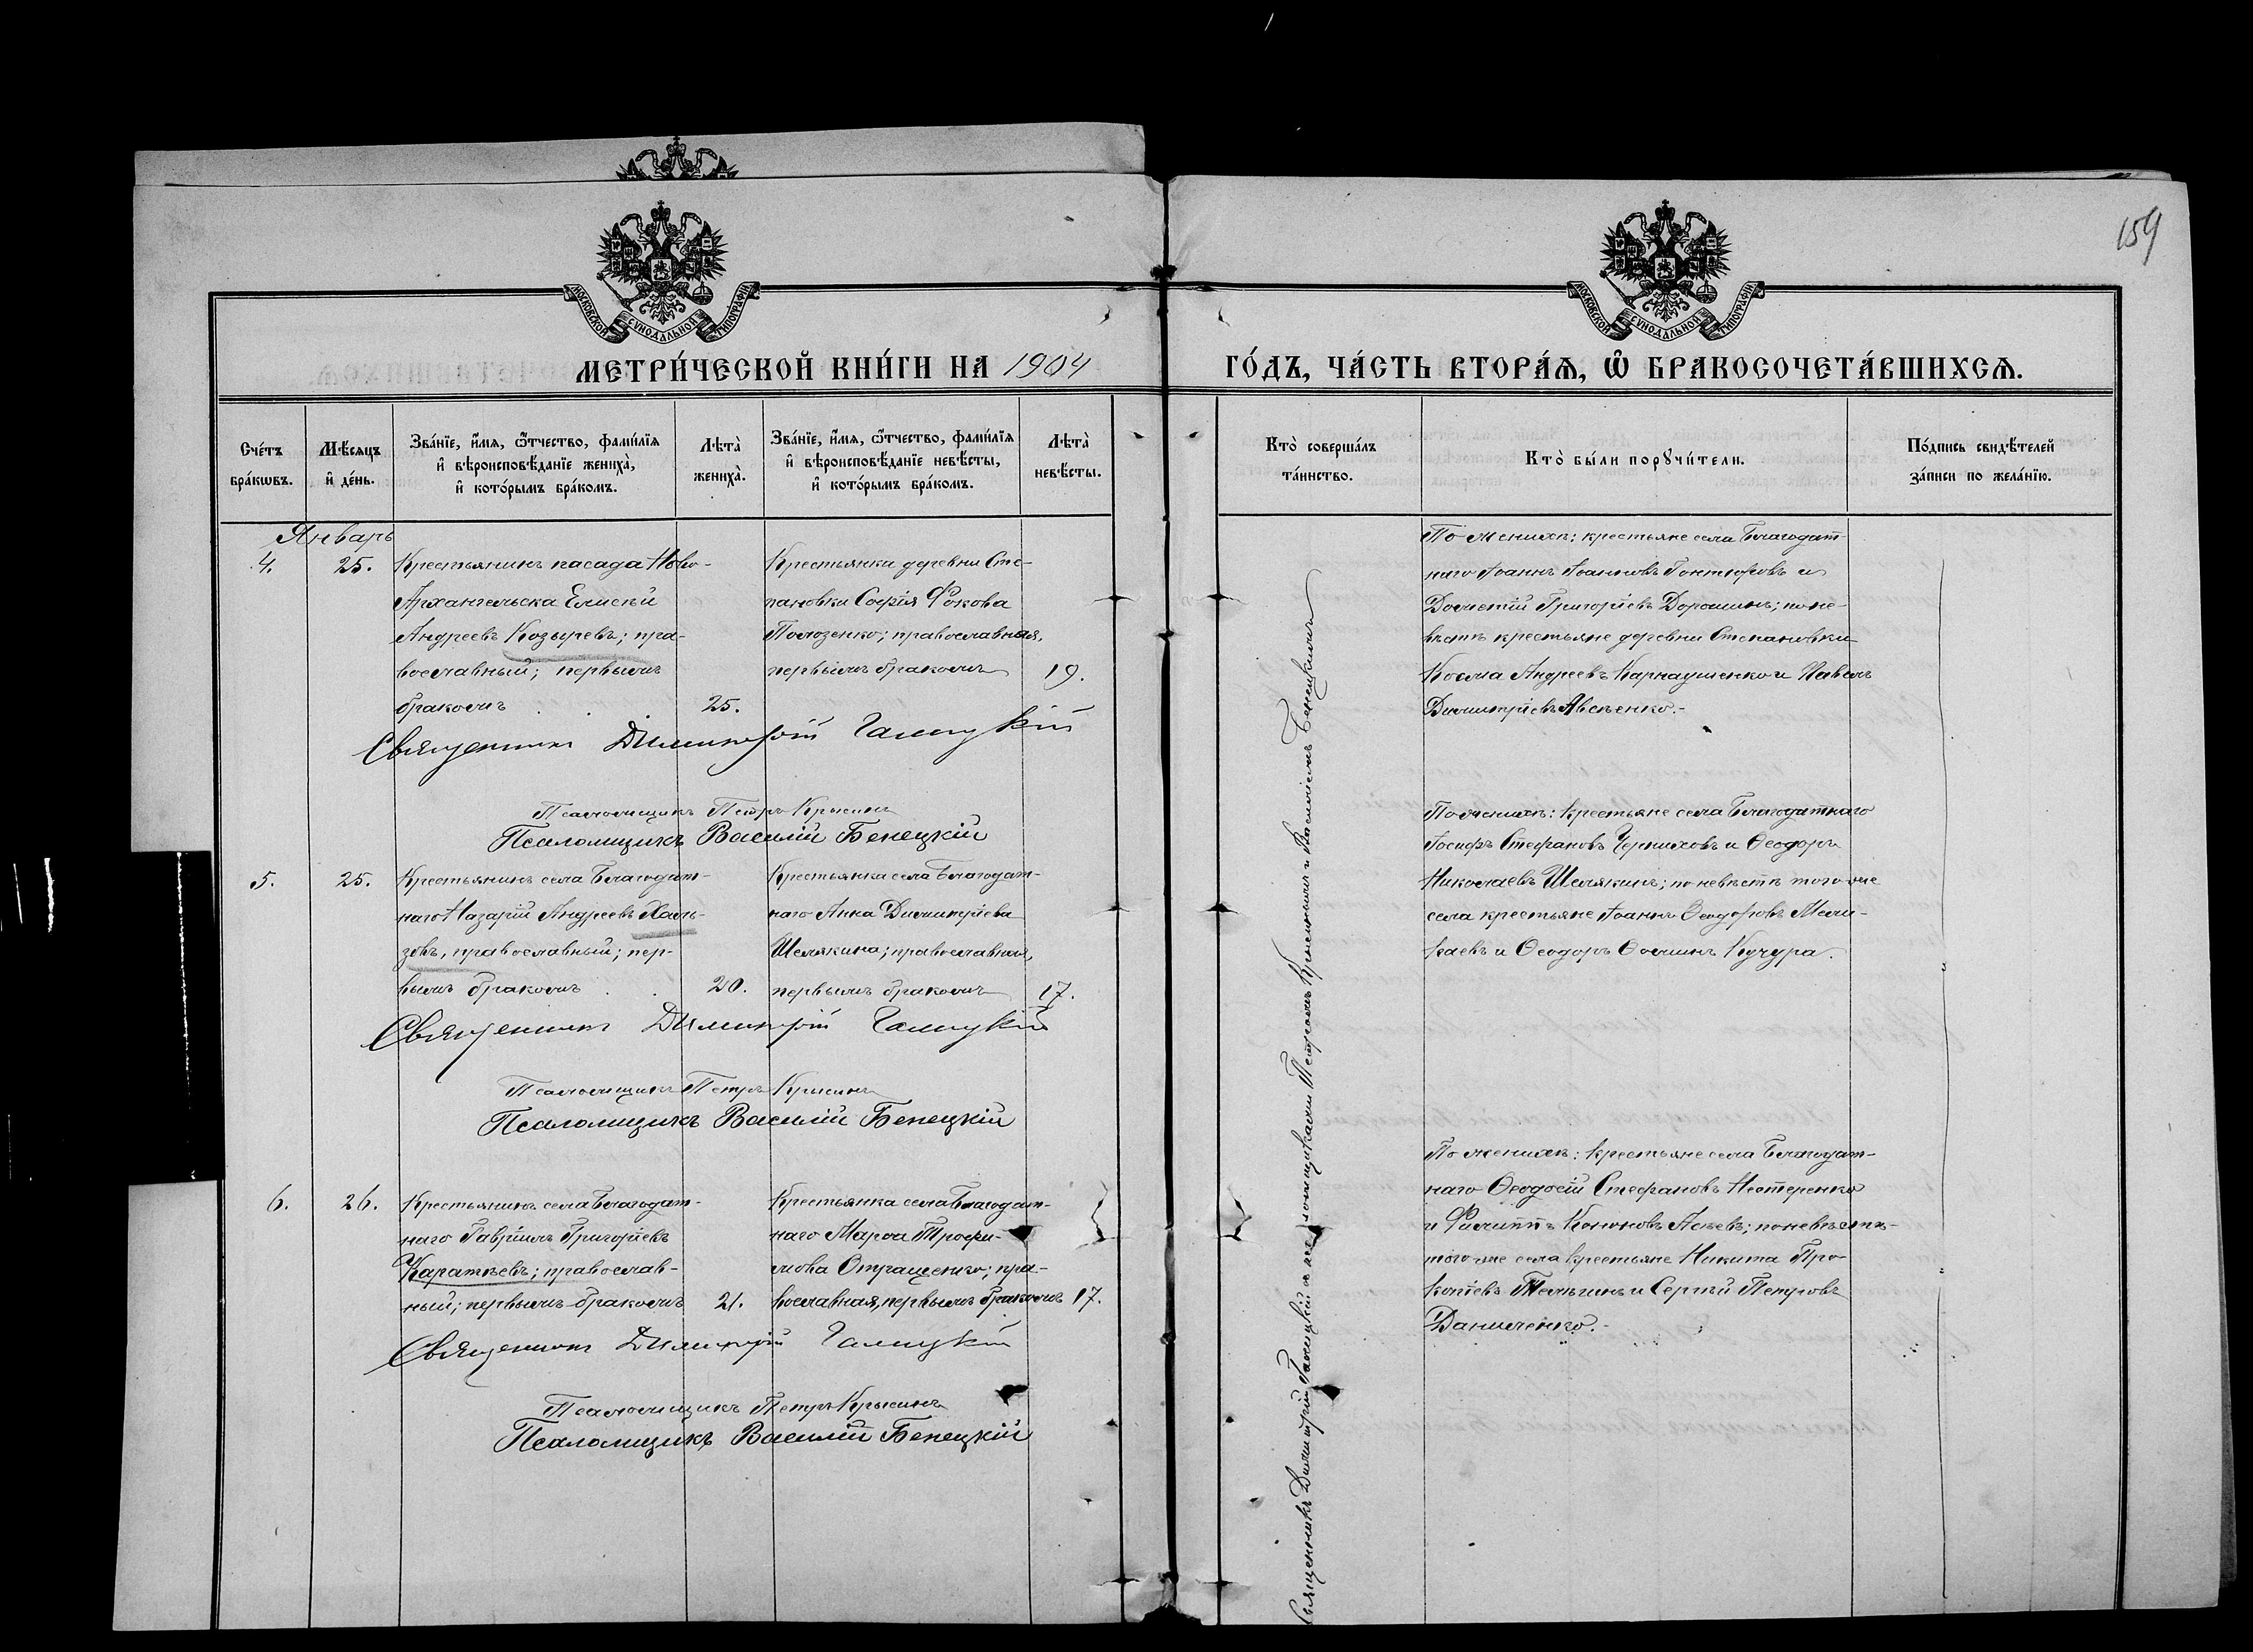 159
МОСКОВСКОЙ СУНОДАЛЬНОЙ ТИПОГРАФІИ
МОСКОВСКОЙ СУНОДАЛЬНОЙ ТИПОГРАФІИ
МЕТРИ́ЧЕСКОЙ КНИ́ГИ НА 1904 ГО́ДЪ, ЧА́СТЬ ВТОРА́Ѧ, Ѽ БРАКОСОЧЕТА́ВШИХСѦ.
Сче́тъ
бра́кѡвъ.
Мѣ́сѧцъ
и҆ де́нь.
Зва́нїе, и҆́мѧ, ѻ҆́тчество, фамѝлїѧ
и҆ вѣроисповѣ́данїе жениха̀,
и҆ кото́рымъ бра́комъ.
Лѣта̀
жениха̀.
Зва́нїе, и҆́мѧ, ѻ҆́тчество, фамѝлїѧ
и҆ вѣроисповѣ́данїе невѣ́сты,
и҆ кото́рымъ бра́комъ.
Лѣта̀
невѣ́сты.
Кто̀ соверша́лъ
та́инство.
Кто̀ бы́ли порꙋчи́тели.
По́дпись свидѣ́телей
за́писи по жела́нїю.
Январь
4.
25.
Крестьянинъ пасада Ново-
Архангельска Елисѣй
Андреевъ Козыревъ; пра-
вославный; первымъ
бракомъ
25.
Крестьянка деревни Сте-
пановки Софія Фокова
Полозенко; православная,
первымъ бракомъ
19.
По женихѣ: крестьяне села Благодат-
наго Іоаннъ Іоанновъ Гонтюровъ и
Дометій Григоріевъ Дорошинъ; по не-
вѣстѣ крестьяне деревни Степановки
Косма Андреевъ Карнаушенко и Павелъ
Димитріевъ Авсѣенко.-
Священникъ Димитрій Галицкій
Псаломщикъ Петръ Крысинъ
Псаломщикъ Василій Бенецкій
5.
25.
Крестьянинъ села Благодат-
наго Назарій Андреевъ Халь-
зовъ, православный; пер-
вымъ бракомъ
20.
Крестьянка села Благодат-
наго Анна Димитріева
Шелякина; православная,
первымъ бракомъ
17.
По женихѣ: крестьяне села Благодатнаго
Іосифъ Стефановъ Черниховъ и Ѳеодоръ
Николаевъ Шелякинъ; по невѣстѣ того-же
села крестьяне Іоаннъ Ѳеодоровъ Мали-
каевъ и Ѳеодоръ Ѳоминъ Кучура.
Священникъ Димитрій Галицкій
Псаломщикъ Петръ Крысинъ
Псаломщикъ Василій Бенецкій
6.
26.
Крестьянинъ села Благодат-
наго Гавріилъ Григоріевъ
Каратѣевъ; православ-
ный; первымъ бракомъ
21.
Крестьянка села Благодат-
наго Марѳа Трофи-
мова Отращенко; пра-
вославная, первымъ бракомъ
17.
По женихѣ: крестьяне села Благодат-
наго Ѳеодосій Стефановъ Нестеренко
и Филиппъ Кононовъ Асѣевъ; по невѣстѣ
того-же села крестьяне Никита Про-
копіевъ Телѣгинъ и Сергѣй Петровъ
Данильченко.-
Священникъ Димитрій Галицкій
Псаломщикъ Петръ Крысинъ
Псаломщикъ Василій Бенецкій
Священникъ Димитрій Галицкій и псаломщиками Петромъ Крысинымъ и Василіемъ Бенецкимъ